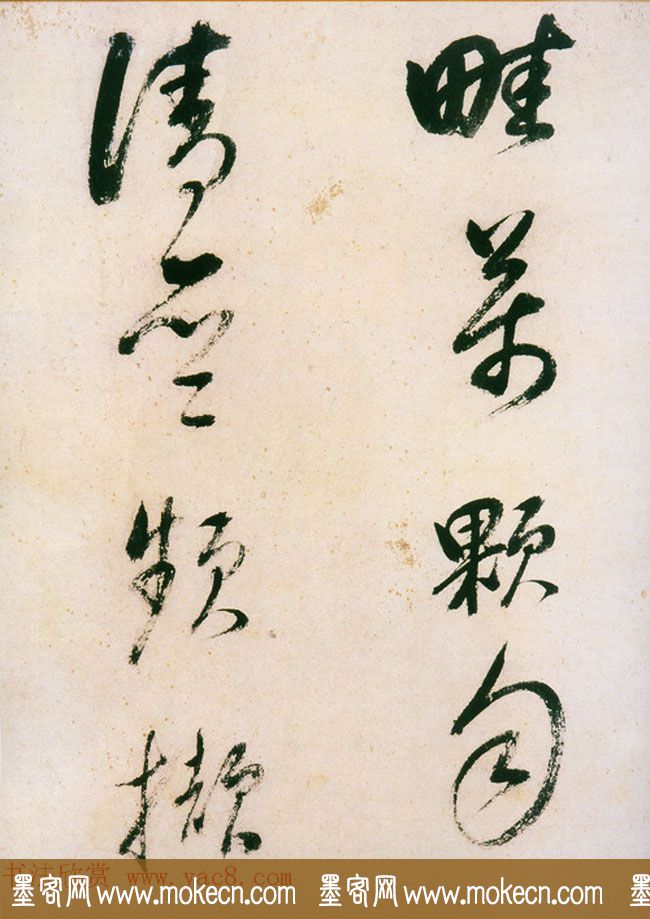 畦萬顆勻
清頻擷
书法欣赏 www.yac8.com
墨客网 www.mokecn.com 墨客网 www.mokecn.com